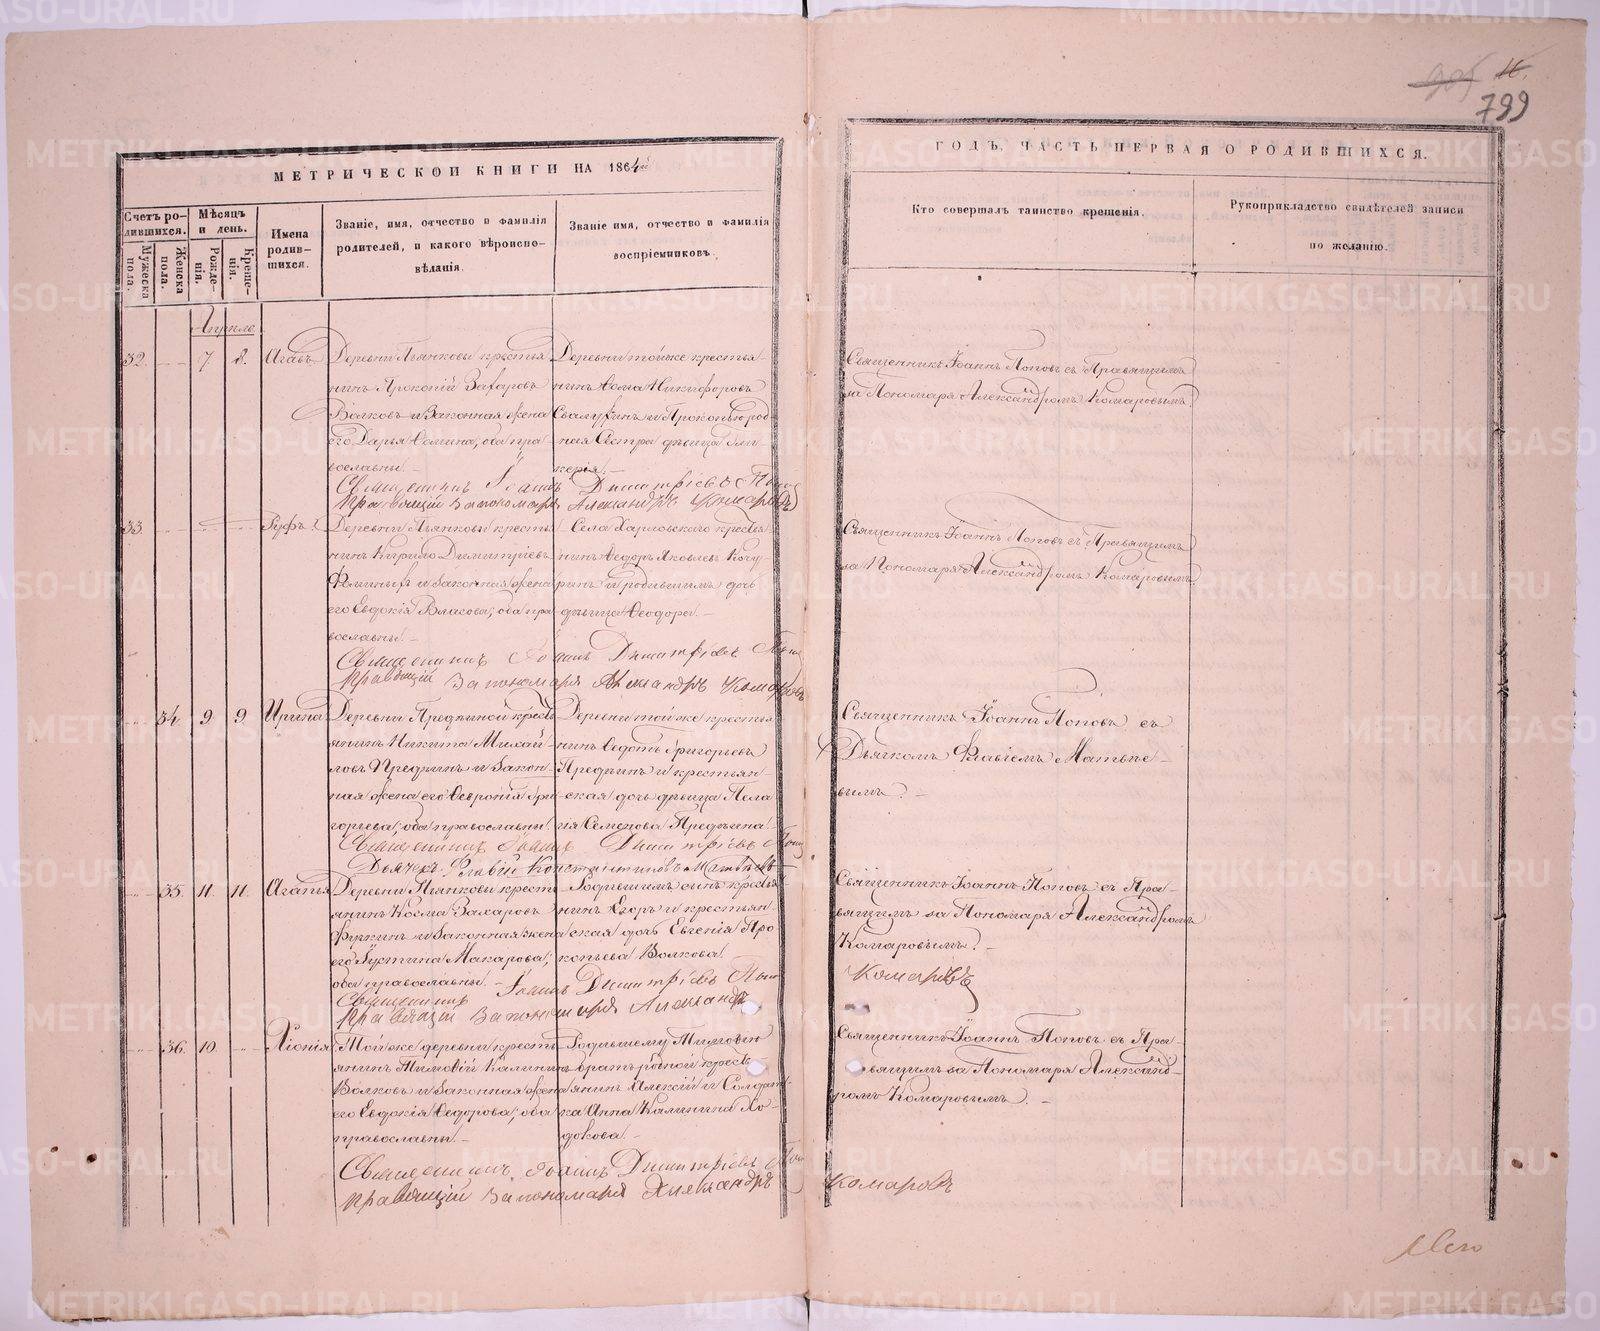 799
МЕТРИЧЕСКОЙ КНИГИ НА 1864й
ГОДЪ, ЧАСТЬ ПЕРВАЯ О РОДИВШИХСЯ.
Счетъ родившихся.
Мужеска пола.
Женска пола.
Мѣсяцъ и день.
Рожденія.
Крещенія.
Имена родившихся.
Званіе, имя, отчество и фамилія
родителей, и какого вѣроиспо-
вѣданія.
Званіе имя, отчество и фамилія
воспріемниковъ.
Кто совершалъ таинство крещенія.
Рукоприкладство свидѣтелей записи
по желанію.
Апрѣле
32. 7 8. Агавъ
Деревни Пьянковы крестья
нинъ Прокопій Захаровъ
Волковъ и законная жена
его Дарья Ѳомина; оба пра-
вославны.
Деревни тойже крестья-
нинъ Ѳома Никифоровъ
и Прокопью род-
ная сестра дѣвица Гли-
керія.
Священникъ Іоаннъ Поповъ съ Правящимъ
за Пономаря Александромъ Комаровымъ
Священникъ Іоаннъ Димитріевъ
Правящій за пономаря Александръ Комаровъ
33. Руфъ
Деревни Пьянковы крестья
нинъ Кирило Димитріевъ
и законная жена
его Евдокія Власова; оба пра-
вославны.
Села Харловскаго крестья
нинъ Ѳедоръ Яковлевъ
и родившимъ дочь
дѣвица Ѳеодора.
Священникъ Іоаннъ Поповъ съ Правящимъ
за Пономаря Александромъ Комаровымъ.
Священникъ Іоаннъ Димитріевъ
Правящій за пономаря Александръ Комаровъ
34. 9 9. Ирина
Деревни Предѣиной кресть
янинъ Никита Михай-
ловъ Предѣинъ и закон-
ная жена его Ѳевронія Гри
горьева; оба православны.
Деревни той же крестья-
нинъ Ѳедотъ Григорьевъ
Предѣинъ и крестьян-
ская дочь дѣвица Пела
гія Семенова Предѣина.
Священникъ Іоаннъ Поповъ съ
Дьячкомъ Флавіемъ Матвѣе-
вымъ.
Священникъ Іоаннъ Димитріевъ
Дьячекъ Флавій Константиновъ Матвѣевъ
35. 11. 11. Агапья
Деревни Пьянковы кресть
янинъ Косма Захаровъ
и законная жена
его Густина Макарова;
оба православны.
Родившимъ сынъ крестья
нинъ Егоръ и крестьян
ская дочь Евгенія Про
копьева Волкова.
Священникъ Іоаннъ Поповъ съ Пра-
вящимъ за Пономаря Александромъ
Комаровымъ.
Священникъ Іоаннъ Димитріевъ
Правящій за пономаря Александръ
Комаровъ
36. 10. Хіонія
Той же деревни кресть
янинъ Тимофій Калининъ
Волковъ и законная жена
его Евдокія Ѳедорова; оба
православны.
Родившему Тимофію
братъ родной кресть
янинъ Алексій и Солдат-
ка Анна Калинина Хо-
докова.
Священникъ Іоаннъ Поповъ съ Пра-
вящимъ за Пономаря Александ-
ромъ Комаровымъ.
Священникъ Іоаннъ Димитріевъ
Правящій за пономаря Александръ
Комаровъ
METRIKI.GASO-URAL.RU